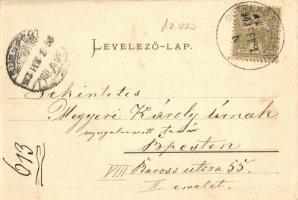 LEVELEZŐ-LAP.
Tekintetes
Megyeri Károly úrnak
nyugalmazott tanár
Bpesten
VIII Baross utcza 55.
II. emelet.
613